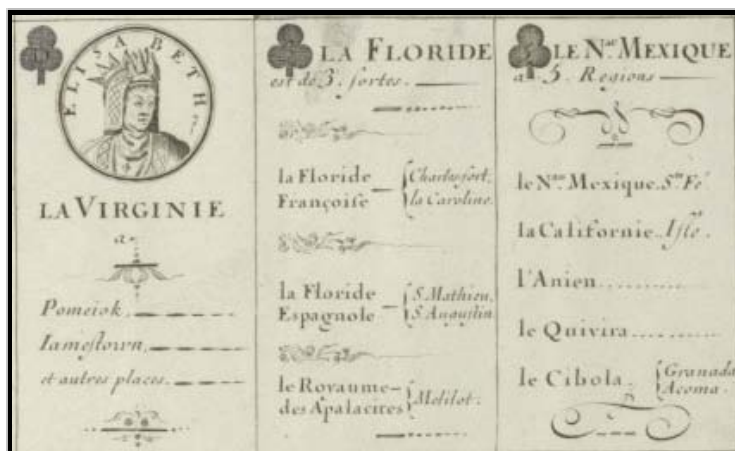 ELISABETH
LA VIRGINIE
a
Pomeiok
Iamestown.
et autres places.
LA FLORIDE
est de 3. sortes.
la Floride
Françoise
Charlesfort.
la Caroline.
la Floride
Espagnole
S. Mathieu.
S. Augustin.
le Royaume
des Apalacites
Melilot.
LE N.au MEXIQUE
a 5. Regions
le N.au Mexique. S.ta Fé
la Californie. Isle.
l'Anien
le Quivira
le Cibola
Granada
Acoma.